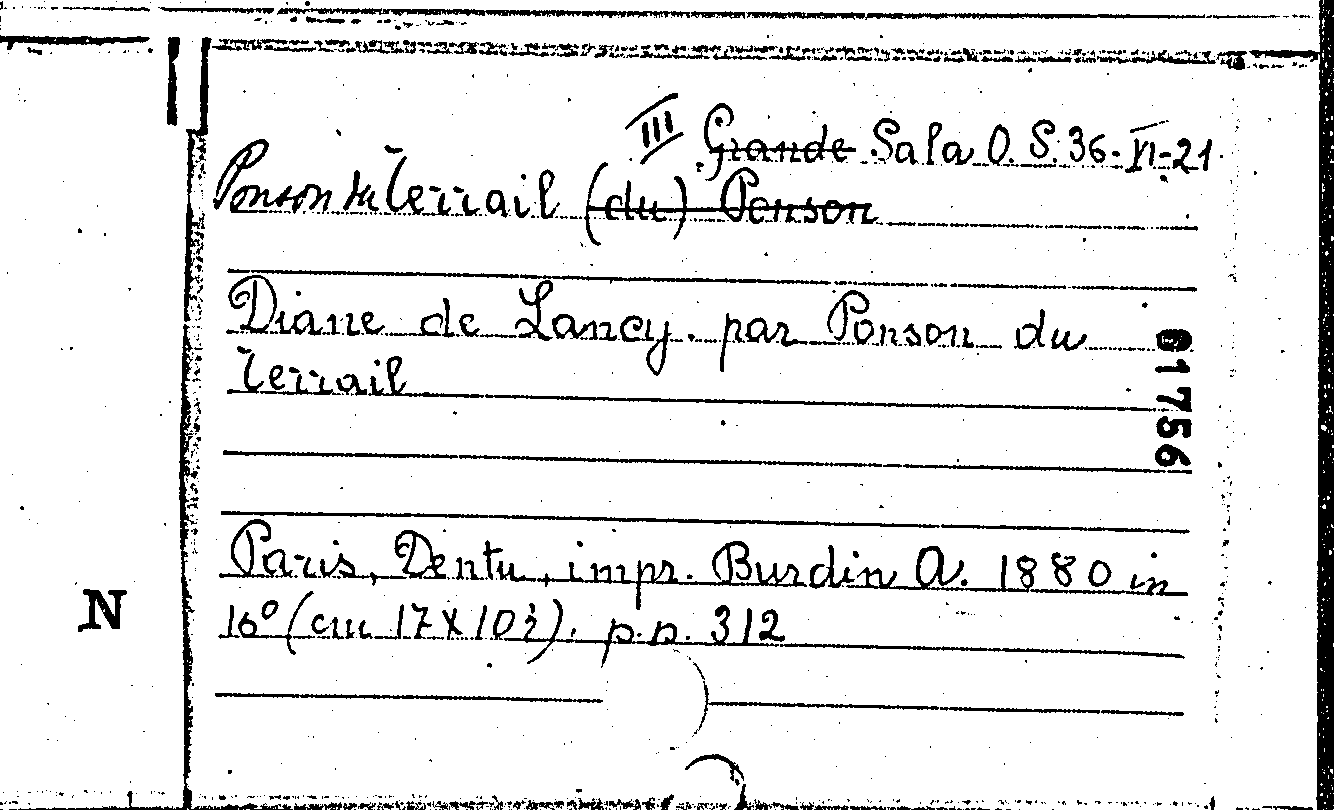 III Grande Sala O. S. 36-VI-21
Ponson du Terrail (du) Ponson
Diane de Lancy. par Ponson du
Terrail
61756
Paris, Dentu, impr. Burdin A. 1880 in
16º (cm 17 X 10½). p.p. 312
N